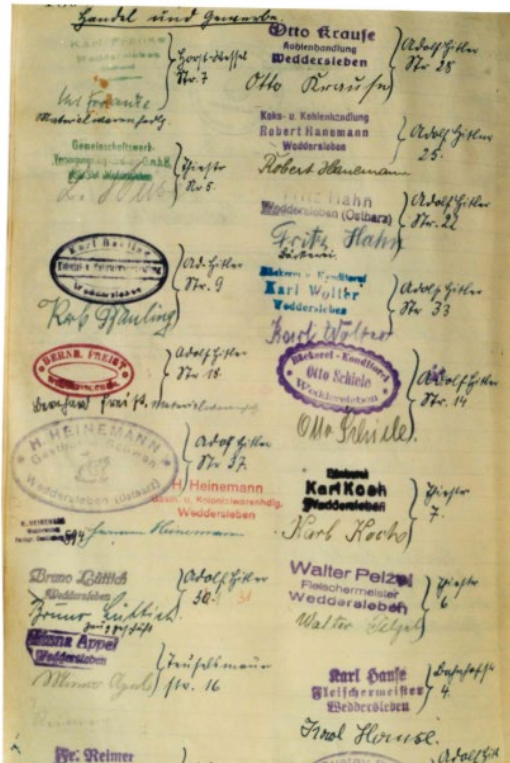 Handel und Gewerbe.
Karl Franke
Weddersleben
Horst-Wessel
Str. 7
Materialwarenhdlg.
Gemeinschaftswerk-
Thiestr
Nr 5
Karl Bauling
Weddersleben
Ad. Hitler
Str. 9
Karl Bauling
BERNH. FREIST
Adolf Hitler
Str. 18.
Bernhard Freist.
H. HEINEMANN
Gasthof z. Schwan
Weddersleben (Ostharz)
Adolf Hitler
Str 37.
H. Heinemann
Gastw. u. Kolonialwarenhdlg.
Weddersleben
H. HEINEMANN
Heinemann
Bruno Lüttich
Weddersleben
Adolf Hitler
Bruno Lüttich
Minna Appel
Weddersleben
Teufelsmauer
str. 16
Fr. Reimer
Otto Krause
Kohlenhandlung
Weddersleben
Adolf Hitler
Str 28
Otto Krause
Koks- u. Kohlenhandlung
Robert Hanemann
Weddersleben
Adolf Hitler
25.
Robert Hanemann
Fritz Hahn
Weddersleben (Ostharz)
Adolf Hitler
Str. 22
Fritz Hahn
Bäckerei.
Bäckerei u. Konditorei
Karl Wolter
Weddersleben
Adolf Hitler
Str 33
Karl Wolter
Bäckerei - Konditorei
Otto Schiele
Weddersleben
Adolf Hitler
Str. 14
Otto Schiele.
Bäckerei
Karl Koch
Weddersleben
Thiestr
7.
Karl Koch
Walter Pelzel
Fleischermeister
Weddersleben
Thiestr
6
Walter Pelzel
Karl Hanse
Fleischermeister
Weddersleben
Bahnhofstr
4.
Karl Hanse.
Adolf Hit